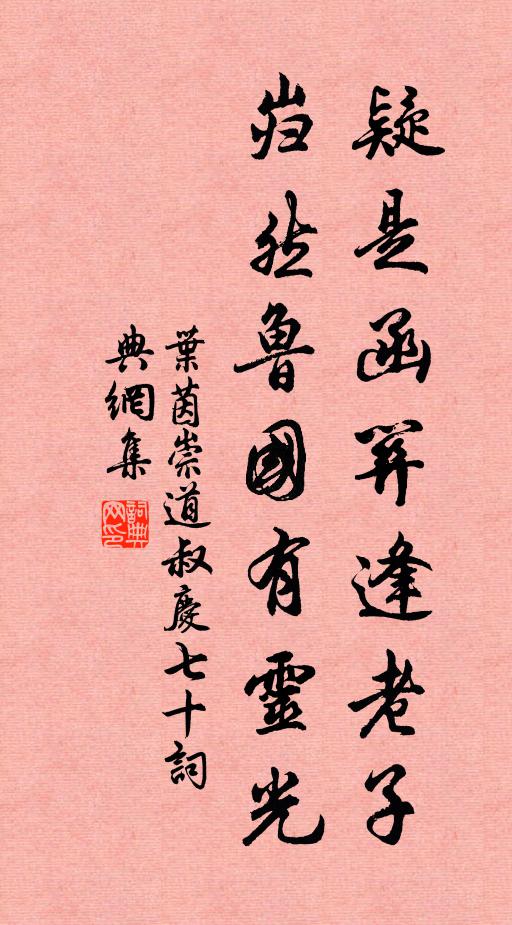 疑是函關逢老子
岿然魯國有靈光
葉茵崇道叔慶七十詞
典網集
詞典網印